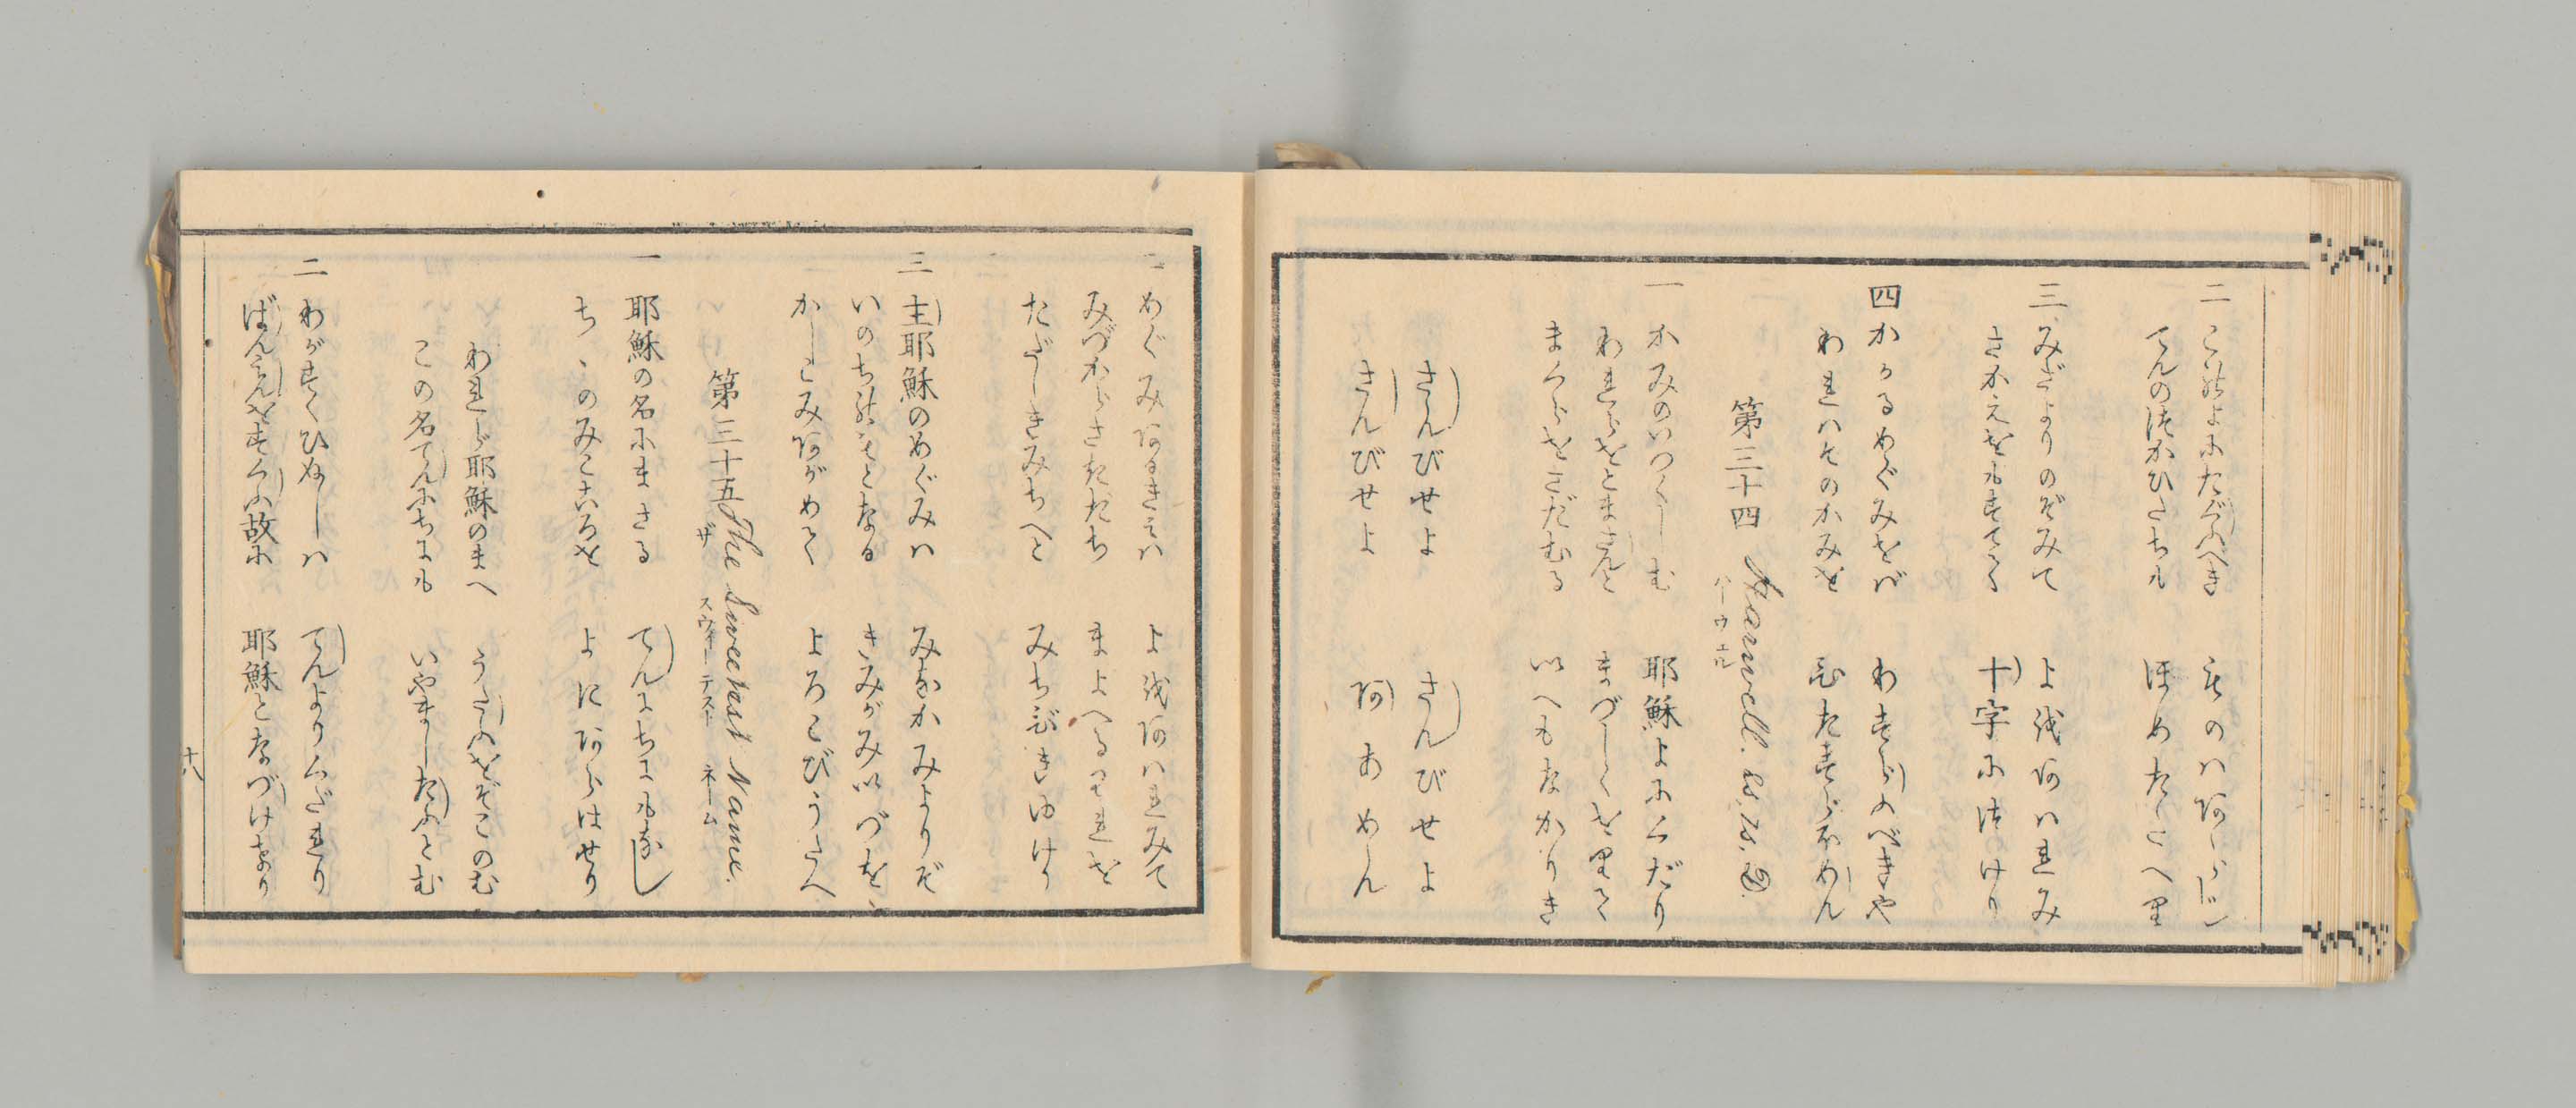 二 このよにたぐふべき ものはあらじ
てんのつかひたちも ほめたたへり
三 みざよりのぞみて よをあはれみ
さかえをもすてて 十字につけり
四 かかるめぐみをば わすらるべきや
われはそのかみを ひたすらほめん
第三十四 Harwell. 8.7.
ハーウエル
一 かみのいつくしむ 耶穌よにくだり
われらをとまさんと まづしくをりて
まくらをさだむる いへもなかりき
さんびせよ さんびせよ
さんびせよ ああめん
二 めぐみあるきみは よをあはれみて
みづからさきだち まよへるわれを
ただしきみちへと みちびきゆけり
三 主耶穌のめぐみは みなかみよりぞ
いのちのもとなる きみがみいづを
かしこみあがめて よろこびうたへ
第三十五 The Sweetest Name.
ザ スウヰーテスト ネーム
一 耶穌の名にまさる てんにちにもなし
ちゝのみこころを よにあらはせり
われら耶穌のまへ うたふをぞこのむ
この名てんにちにも いやましたふとむ
二 わがすくひぬしハ てんよりくだれり
ばんみんをすくふ故に 耶穌となづけたり
十八